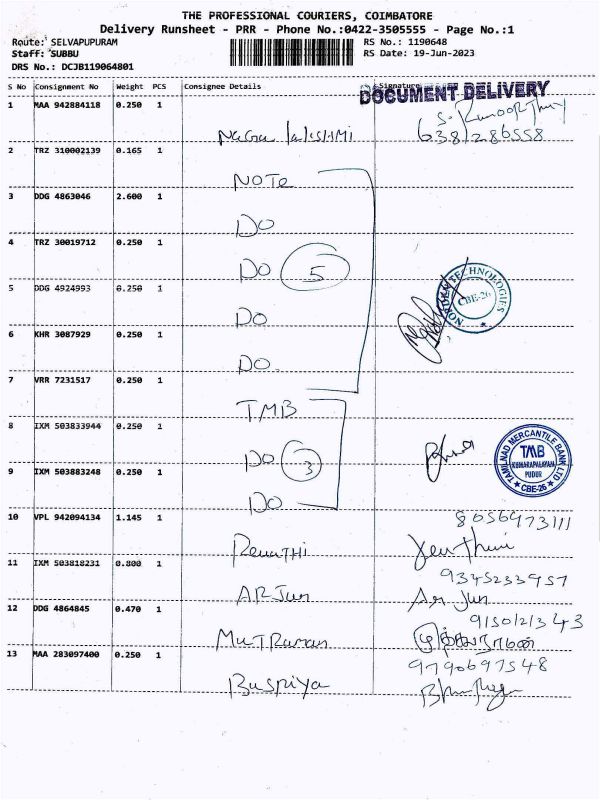 THE PROFESSIONAL COURIERS, COIMBATORE
Delivery Runsheet - PRR - Phone No.:0422-3505555 - Page No.:1
Route: SELVAPUPURAM RS No.: 1190648
Staff: SUBBU RS Date: 19-Jun-2023
DRS No.: DCJB119064801
S No Consignment No Weight PCS Consignee Details Signature
DOCUMENT DELIVERY
1 MAA 942884118 0.250 1
2 TRZ 310002139 0.165 1
NOTE
3 DDG 4863046 2.600 1
DO
4 TRZ 30019712 0.250 1
DO 5
NOVADEN TECHNOLOGIES CBE-26
5 DDG 4924993 0.250 1
DO
6 KHR 3087929 0.250 1
DO.
7 VRR 7231517 0.250 1
TMB
8 IXM 503833944 0.250 1
DO 3
TAMILNAD MERCANTILE BANK LTD TMB KUMARAPALAYAM PUDUR CBE-26
9 IXM 503883248 0.250 1
DO
10 VPL 942094134 1.145 1 8056973111
11 IXM 503818231 0.800 1 9345233957
ARJun Ar Jun
12 DDG 4864845 0.470 1
MutRaman முத்துராமன்
13 MAA 283097400 0.250 1 9790697548
Buspiya